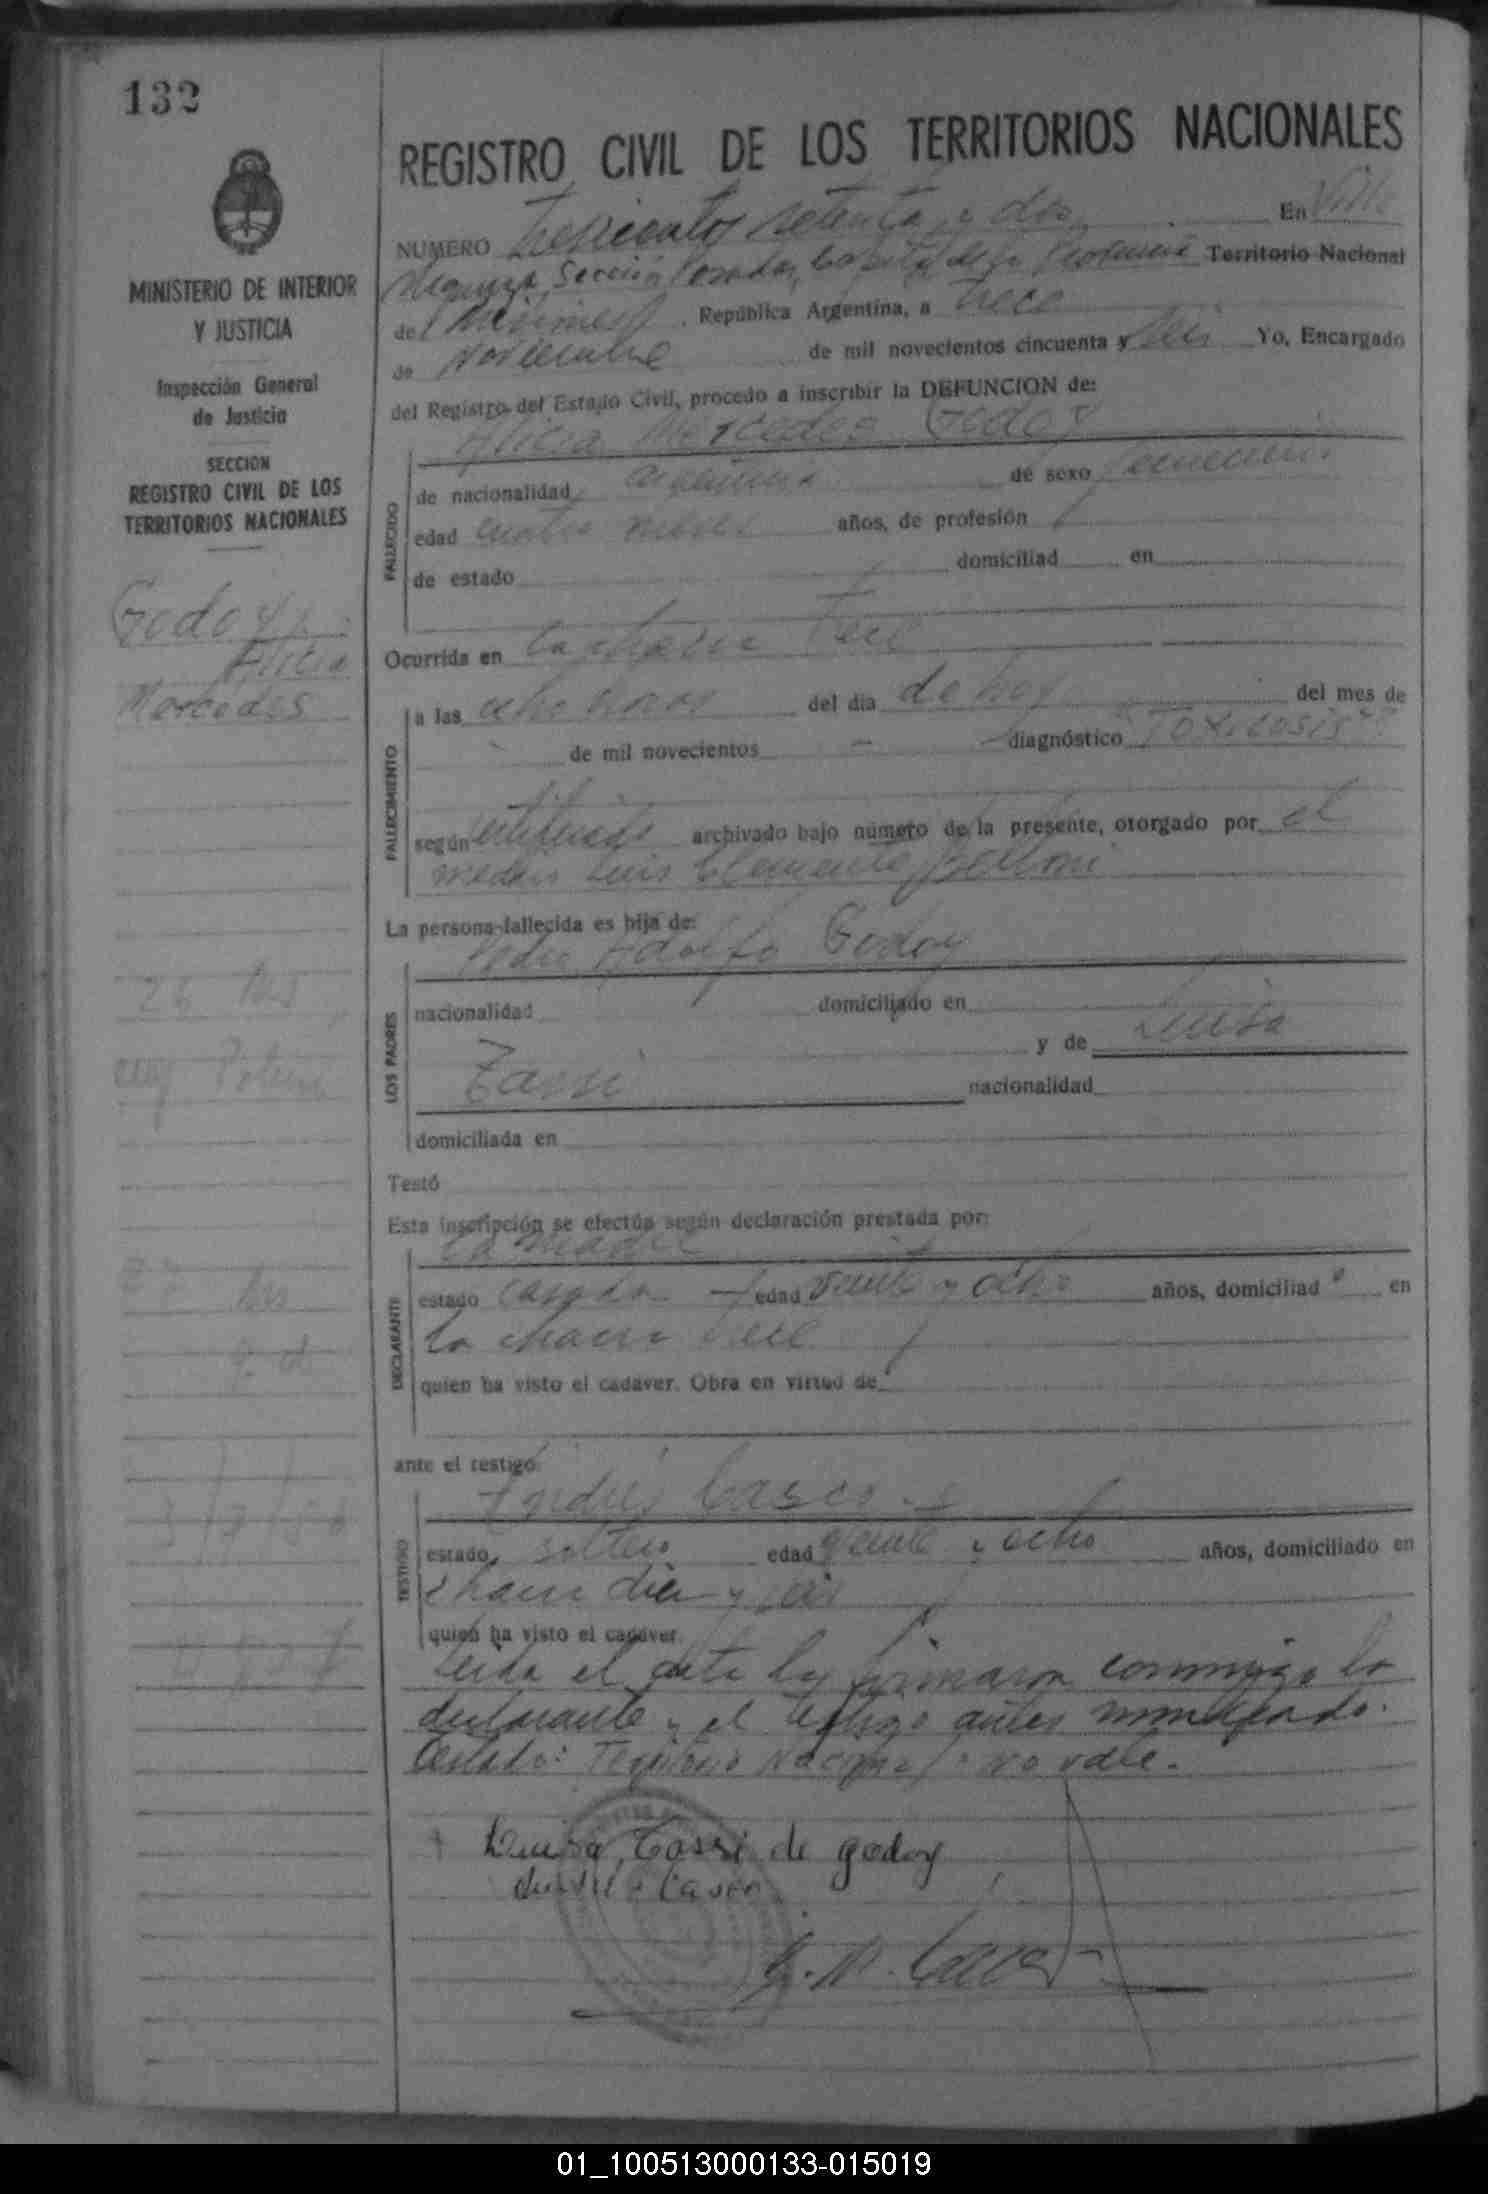 132
REGISTRO CIVIL DE LOS TERRITORIOS NACIONALES
NUMERO trescientos setenta y dos En Villa
Sección Posadas, Capital de la Provincia Territorio Nacional
de Misiones. República Argentina, a trece
de noviembre de mil novecientos cincuenta y seis Yo, Encargado
del Registro del Estado Civil, procedo a inscribir la DEFUNCION de:
Alicia Mercedes Godoy
MINISTERIO DE INTERIOR
Y JUSTICIA
Inspección General
de Justicia
SECCION
REGISTRO CIVIL DE LOS
TERRITORIOS NACIONALES
Godoy
Alicia
Mercedes
FALLECIDO
de nacionalidad argentina de sexo femenino
edad cuatro meses años, de profesión
de estado domiciliad en
Ocurrida en la chacra
FALLECIMIENTO
a las ocho horas del día de hoy del mes de
de mil novecientos — diagnóstico "Toxicosis"
según certificado archivado bajo número de la presente, otorgado por el
médico Luis Clemente
La persona fallecida es hija de:
Pedro Adolfo Godoy
LOS PADRES
nacionalidad domiciliado en
y de Luisa
Tassi nacionalidad
domiciliada en
Testó
Esta inscripción se efectúa según declaración prestada por:
la madre
DECLARANTE
estado casada edad veinte y ocho años, domiciliad a en
la chacra
quien ha visto el cadáver. Obra en virtud de
ante el testigo:
Andrés Casco
TESTIGO
estado soltero edad veinte y ocho años, domiciliado en
chacra diez y seis
quien ha visto el cadáver.
Leída el acta la firmaron conmigo la
declarante y el testigo antes mencionado.
Testado: Territorio Nacional: no vale.
Luisa Tassi de godoy
01_100513000133-015019